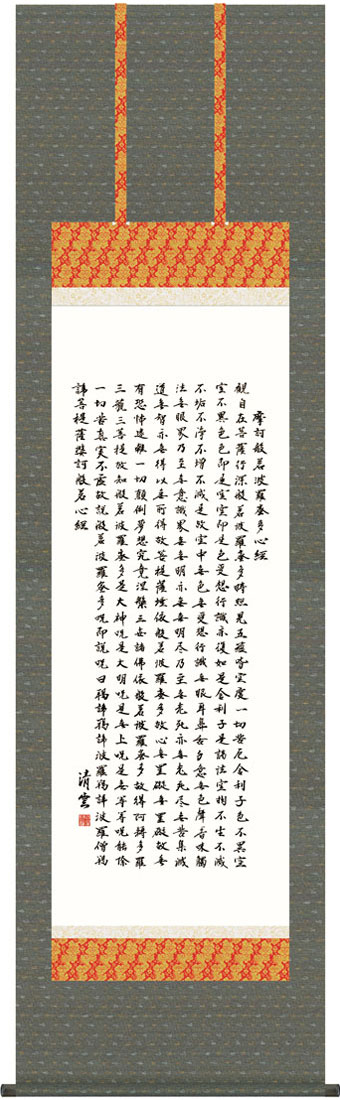 摩訶般若波羅蜜多心経
観自在菩薩行深般若波羅蜜多時照見五蘊皆空度一切苦厄舎利子色不異空
空不異色色即是空空即是色受想行識亦復如是舎利子是諸法空相不生不滅
不垢不浄不増不減是故空中無色無受想行識無眼耳鼻舌身意無色聲香味觸
法無眼界乃至無意識界無無明亦無無明尽乃至無老死亦無老死尽無苦集滅
道無智亦無得以無所得故菩提薩埵依般若波羅蜜多故心無罣礙無罣礙故無
有恐怖遠離一切顛倒夢想究竟涅槃三世諸佛依般若波羅蜜多故得阿耨多羅
三藐三菩提故知般若波羅蜜多是大神呪是大明呪是無上呪是無等等呪能除
一切苦真実不虚故説般若波羅蜜多呪即説呪曰羯諦羯諦波羅羯諦波羅僧羯
諦菩提薩婆訶般若心経
清雲